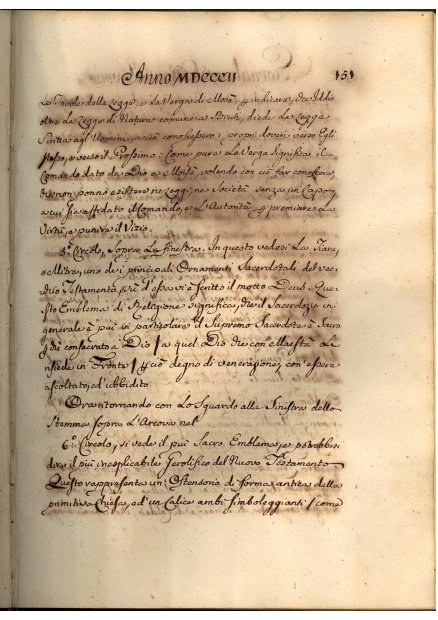 Anno MDCCCII 151
Le Tavole della Legge, e la Verga di Mosè, p indicare, che Iddio
oltre la Legge di Natura comune a Bruti, diede la Legge
Scritta agl'Uomini, acciò conoscessero i proprj doveri verso Egli
stesso, e verso il Prossimo: Come pure la Verga significa il
Comando dato da Dio a Mosè, volendo con ciò far conoscere,
che non ponno esistere nè Leggi, nè Società senza un Capo,
a cui sia affidato il Comando, e l'Autorità p premiare la
Virtù, e punire il Vizio.
5.° Circolo, Sopra la finestra. In questo vedesi la Tiara,
o Mitra, uno dei principali Ornamenti Sacerdotali del Vec-
chio Testamento, su d'essa vi è scritto il motto Deus. Que-
sto Emblema di Religione significa, che il Sacerdozio in
generale è pui in particolare il Supremo Sacerdote è Sacro
che consacrato a Dio / a quel Dio che con Maestà Le
risiede in Fronte / è ciò degno di venerazione, con essere
ascoltato, ed ubbidito.
Ora ritornando con lo Sguardo alla Sinistra dello
Stemma sopra l'Arcova nel
6.° Circolo, si vede il più Sacro Emblema, e potrebbesi
dire il più inesplicabile Geroglifico del Nuovo Testamento.
Questo rappresenta un Ostensorio di forma antica della
primitiva Chiesa, ed un Calice ambi simboleggianti / come